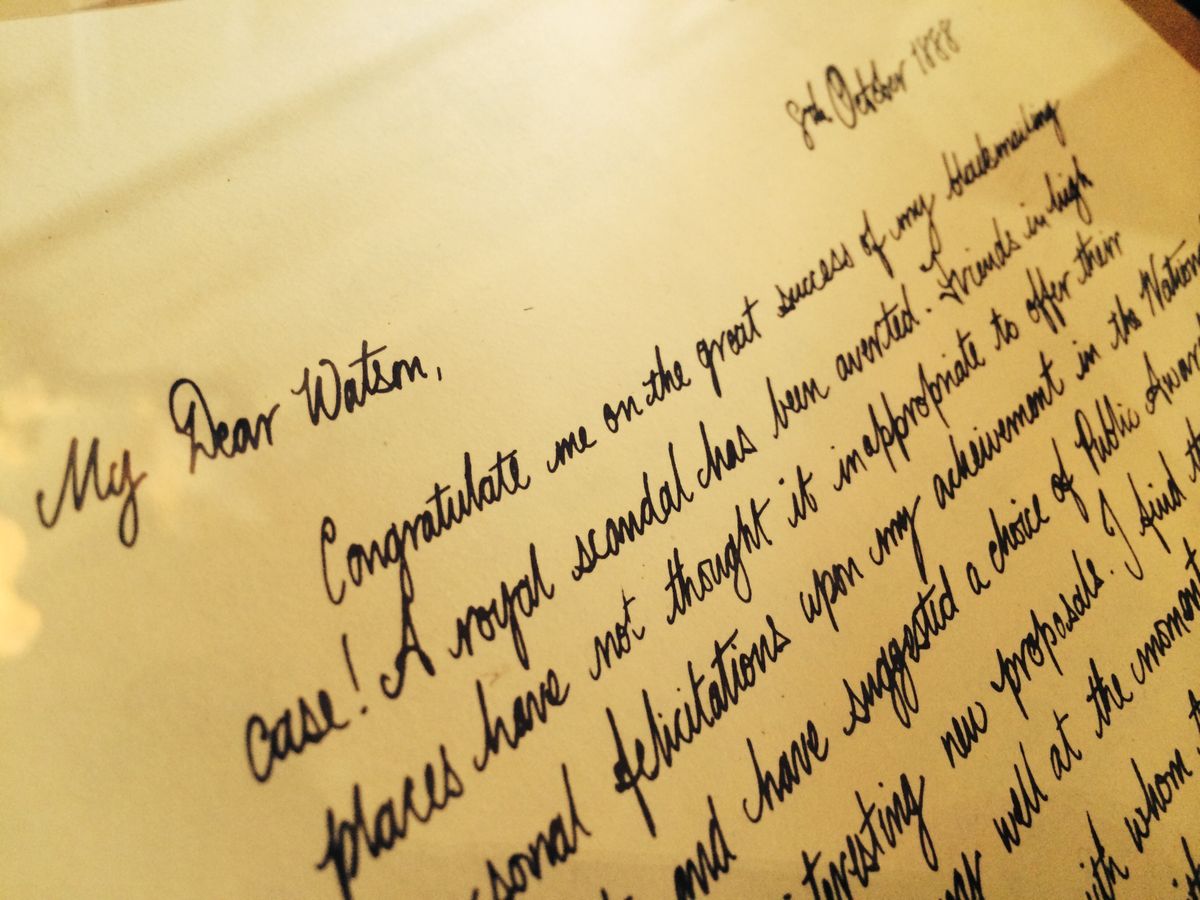 8th October 1888
My Dear Watson,
Congratulate me on the great success of my blackmailing
case! A royal scandal has been averted. Friends in high
places have not thought it inappropriate to offer their
sonal felicitations upon my acheivement in the Nation
and have suggested a choice of Public Awar
teresting new proposals. I find th
well at the moment
ith whom